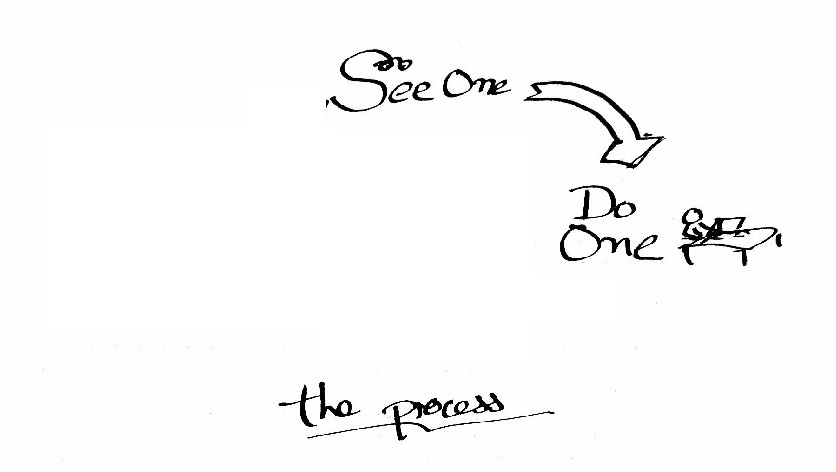 See One
Do
One
the process